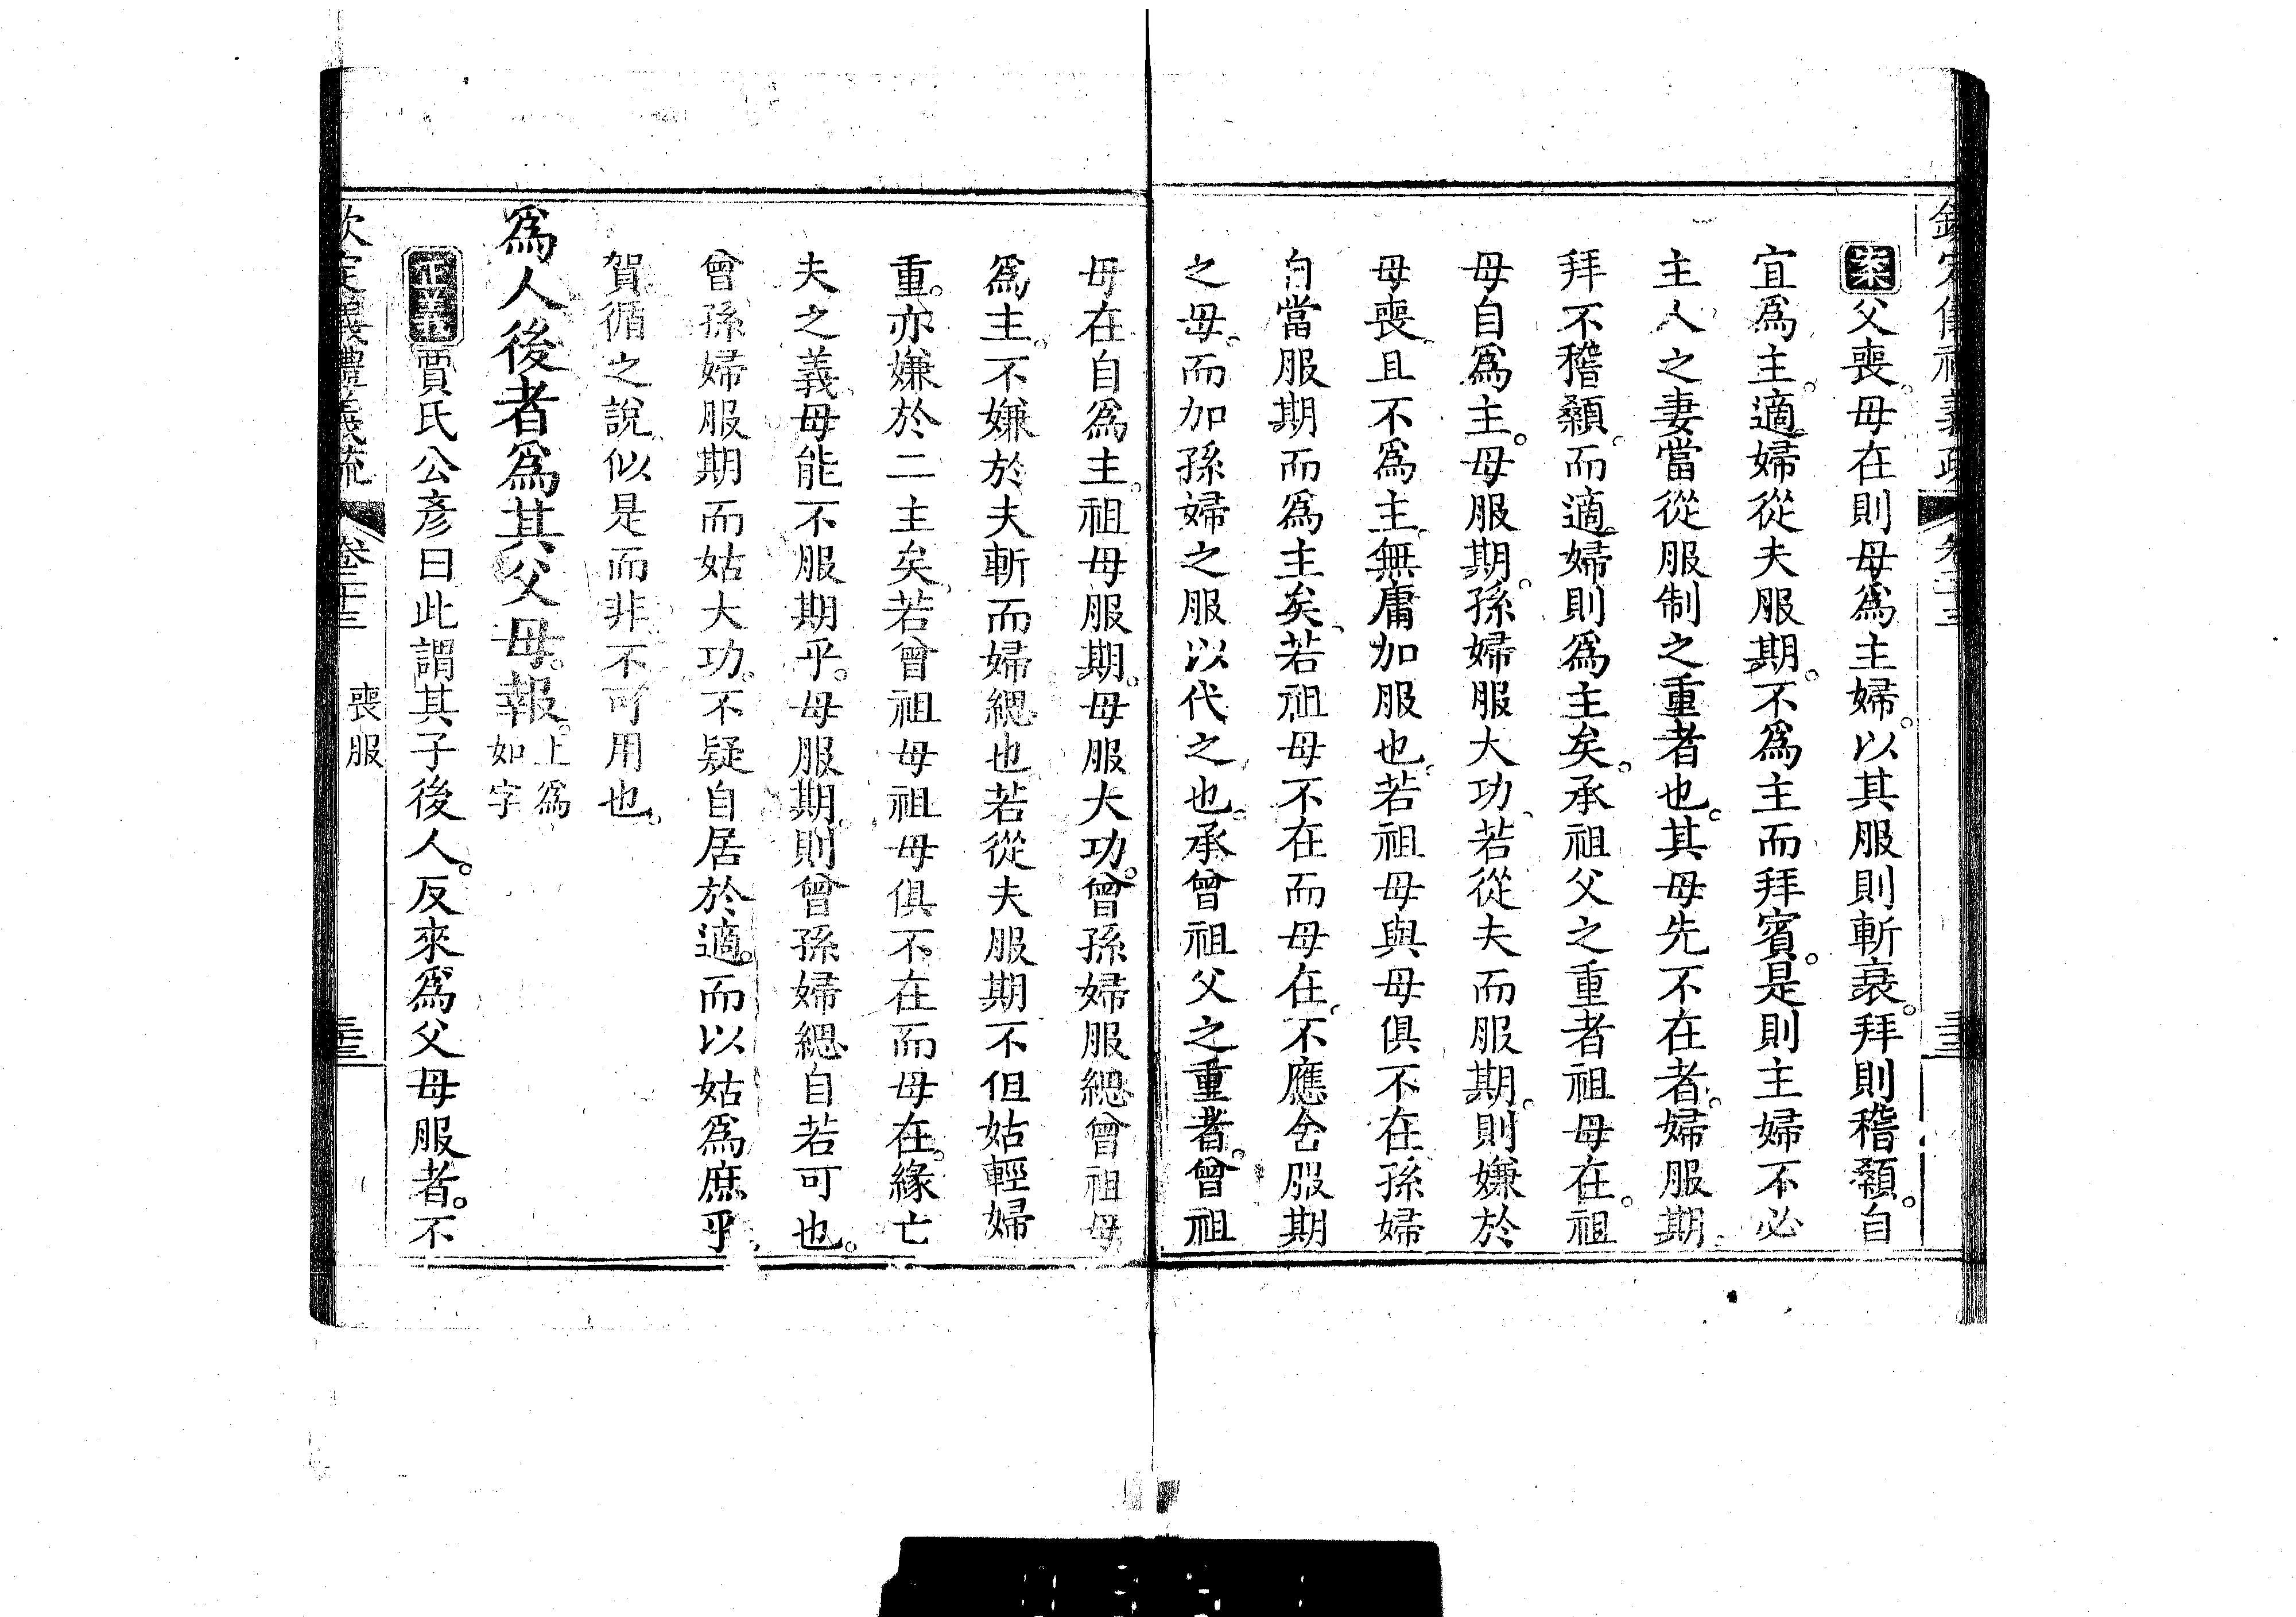 案父喪。母在則母爲主婦。以其服則斬衰。拜則稽顙。自
宜爲主。適婦從夫服期。不爲主而拜賓。是則主婦不必
主人之妻當從服制之重者也。其母先不在者。婦服期。
拜不稽顙。而適婦則爲主矣。承祖父之重者祖母在。祖
母自爲主。母服期。孫婦服大功、若從夫而服期。則嫌於
母喪、且不爲主、無庸加服也。若祖母與母俱不在孫婦
自當服期而爲主矣、若祖母不在而母在、不應舍服期
之母。而加孫婦之服以代之也。承曾祖父之重者。曾祖
母在自爲主。祖母服期。母服大功。曾孫婦服緦曾祖母
爲主。不嫌於夫斬而婦緦也若從夫服期不但姑輕婦
重。亦嫌於二主矣、若曾祖母祖母俱不在而母在。緣亡
夫之義。母能不服期乎。母服期。則曾孫婦緦自若可也。
曾孫婦服期而姑大功。不疑自居於適。而以姑爲庶乎、
賀循之說。似是而非。不可用也。
爲人後者爲其父母。報。上爲如字
正義賈氏公彥曰此謂其子後人。反來爲父母服者。不
喪服